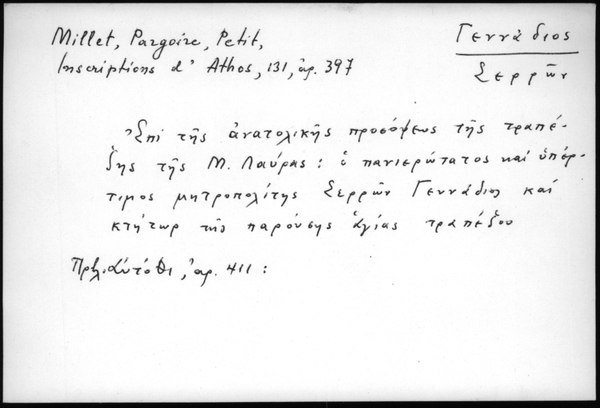 Millet, Pargoire, Petit,
Inscriptions d' Athos, 131, ἀρ. 397
Γεννάδιος
Σερρῶν
Ἐπὶ τῆς ἀνατολικῆς προσόψεως τῆς τραπέ-
ζης τῆς Μ. Λαύρας: ὁ πανιερώτατος καὶ ὑπέρ-
τιμος μητροπολίτης Σερρῶν Γεννάδιος καί
κτήτωρ τῆς παρούσης ἁγίας τραπέζου
Πρβλ. αὐτόθι, ἀρ. 411: